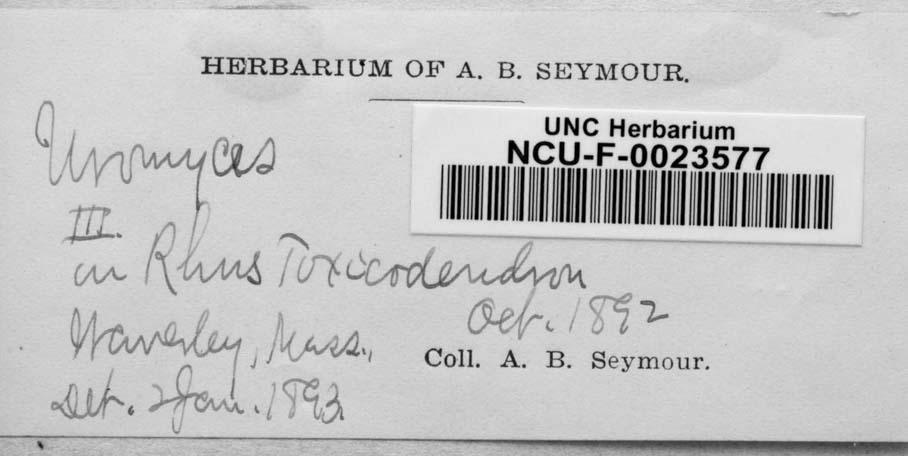 HERBARIUM OF A. B. SEYMOUR.
UNC Herbarium
NCU-F-0023577
Uromyces
III.
on Rhus Toxicodendron
Oct. 1892
Waverley, Mass.,
Coll. A. B. Seymour.
Det. 2 Jan. 1893.